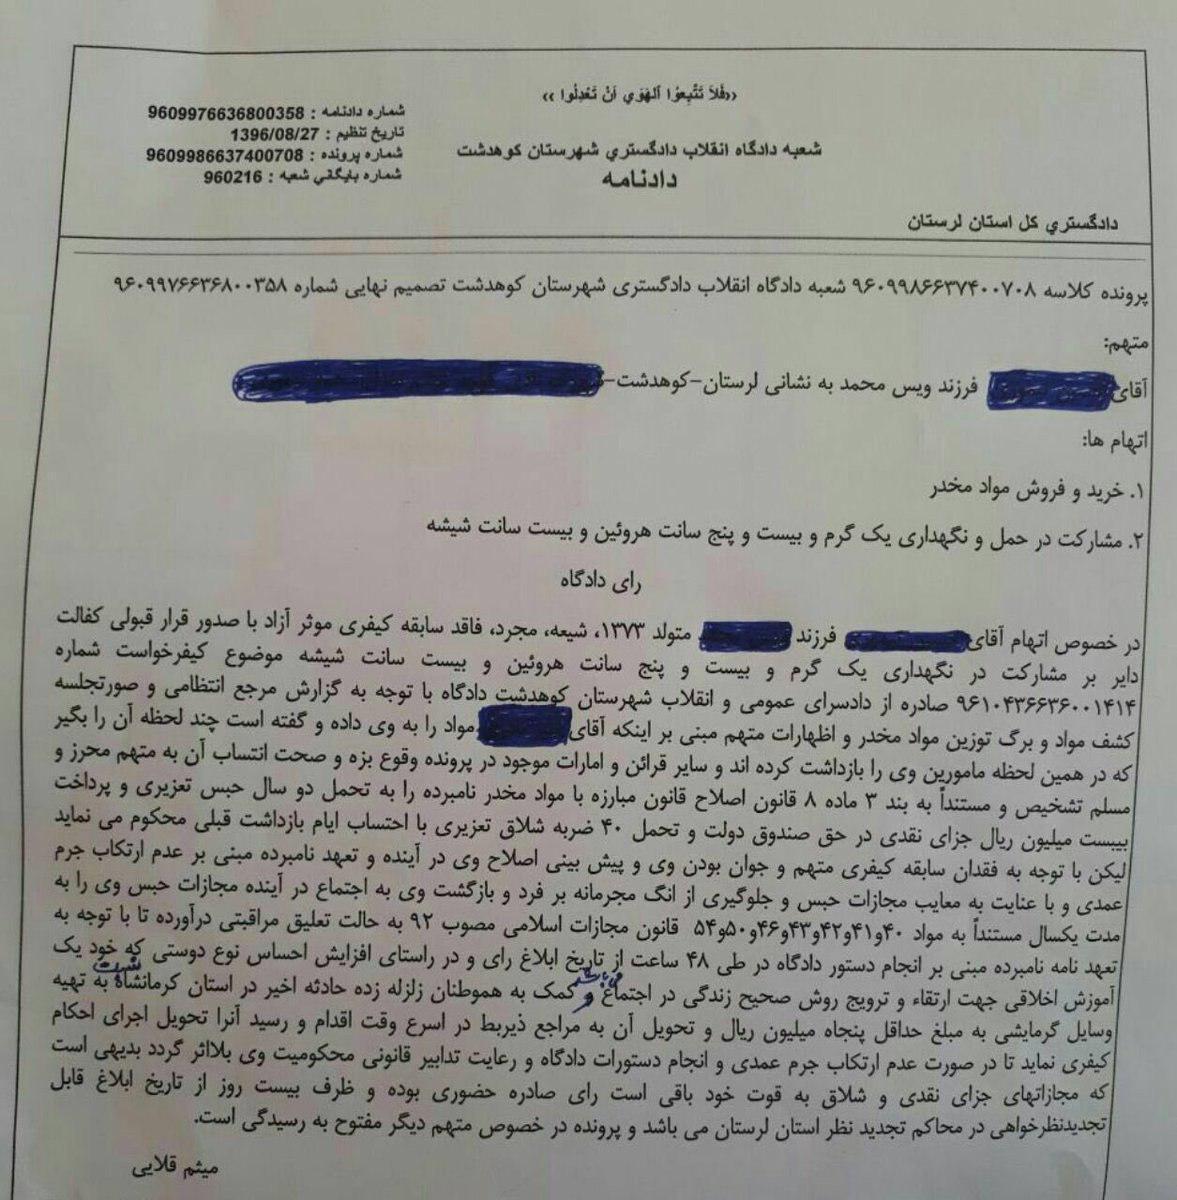 «فَلاَ تَتَّبِعُوا الهَوَي اَنْ تَعْدِلُوا»
شماره دادنامه : 9609976636800358
تاریخ تنظیم : 1396/08/27
شماره پرونده : 9609986637400708
شماره بایگاني شعبه : 960216
شعبه دادگاه انقلاب دادگستري شهرستان کوهدشت
دادنامه
دادگستري کل استان لرستان
پرونده کلاسه ۹۶۰۹۹۸۶۶۳۷۴۰۰۷۰۸ شعبه دادگاه انقلاب دادگستری شهرستان کوهدشت تصمیم نهایی شماره ۹۶۰۹۹۷۶۶۳۶۸۰۰۳۵۸
متهم:
آقای فرزند ویس محمد به نشانی لرستان-کوهدشت-
اتهام ها:
۱. خرید و فروش مواد مخدر
۲. مشارکت در حمل و نگهداری یک گرم و بیست و پنج سانت هروئین و بیست سانت شیشه
رای دادگاه
در خصوص اتهام آقای فرزند متولد ۱۳۷۳، شیعه، مجرد، فاقد سابقه کیفری موثر آزاد با صدور قرار قبولی کفالت
دایر بر مشارکت در نگهداری یک گرم و بیست و پنج سانت هروئین و بیست سانت شیشه موضوع کیفرخواست شماره
۹۶۱۰۴۳۶۶۳۶۰۰۱۴۱۴ صادره از دادسرای عمومی و انقلاب شهرستان کوهدشت دادگاه با توجه به گزارش مرجع انتظامی و صورتجلسه
کشف مواد و برگ توزین مواد مخدر و اظهارات متهم مبنی بر اینکه آقای مواد را به وی داده و گفته است چند لحظه آن را بگیر
که در همین لحظه مامورین وی را بازداشت کرده اند و سایر قرائن و امارات موجود در پرونده وقوع بزه و صحت انتساب آن به متهم محرز و
مسلم تشخیص و مستنداً به بند ۳ ماده ۸ قانون اصلاح قانون مبارزه با مواد مخدر نامبرده را به تحمل دو سال حبس تعزیری و پرداخت
بییست میلیون ریال جزای نقدی در حق صندوق دولت و تحمل ۴۰ ضربه شلاق تعزیری با احتساب ایام بازداشت قبلی محکوم می نماید
لیکن با توجه به فقدان سابقه کیفری متهم و جوان بودن وی و پیش بینی اصلاح وی در آینده و تعهد نامبرده مبنی بر عدم ارتکاب جرم
عمدی و با عنایت به معایب مجازات حبس و جلوگیری از انگ مجرمانه بر فرد و بازگشت وی به اجتماع در آینده مجازات حبس وی را به
مدت یکسال مستنداً به مواد ۴۰و۴۱و۴۲و۴۳و۴۶و۵۰و۵۴ قانون مجازات اسلامی مصوب ۹۲ به حالت تعلیق مراقبتی درآورده تا با توجه به
تعهد نامه نامبرده مبنی بر انجام دستور دادگاه در طی ۴۸ ساعت از تاریخ ابلاغ رای و در راستای افزایش احساس نوع دوستی که خود یک
آموزش اخلاقی جهت ارتقاء و ترویج روش صحیح زندگی در اجتماع و کمک به هموطنان زلزله زده حادثه اخیر در استان کرمانشاه به تهیه
وسایل گرمایشی به مبلغ حداقل پنجاه میلیون ریال و تحویل آن به مراجع ذیربط در اسرع وقت اقدام و رسید آنرا تحویل اجرای احکام
کیفری نماید تا در صورت عدم ارتکاب جرم عمدی و انجام دستورات دادگاه و رعایت تدابیر قانونی محکومیت وی بلااثر گردد بدیهی است
که مجازاتهای جزای نقدی و شلاق به قوت خود باقی است رای صادره حضوری بوده و ظرف بیست روز از تاریخ ابلاغ قابل
تجدیدنظرخواهی در محاکم تجدید نظر استان لرستان می باشد و پرونده در خصوص متهم دیگر مفتوح به رسیدگی است.
میثم قلایی